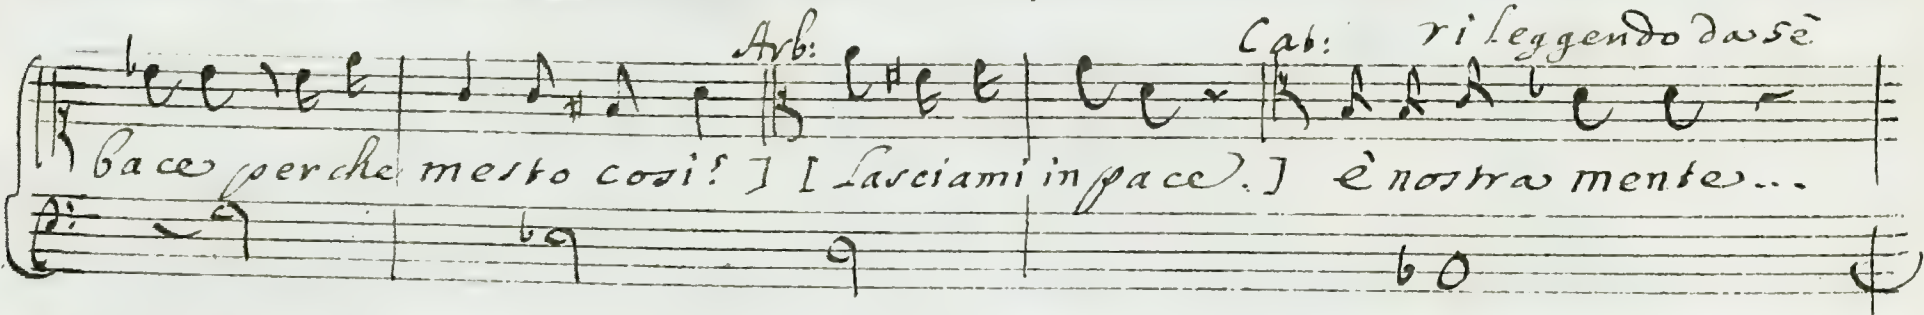 Arb: Cab: rileggendo da sè
bace perche mesto cosi? ] [ Lasciami in pace. ] è nostra mente...